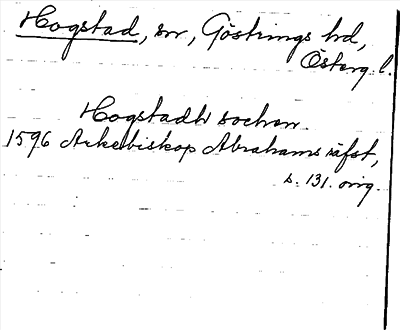 Hogstad, sn, Göstrings hd,
Österg. l.
Hogstadh sochen
1596 Ärkebiskop Abrahams räfst,
s. 131. orig.